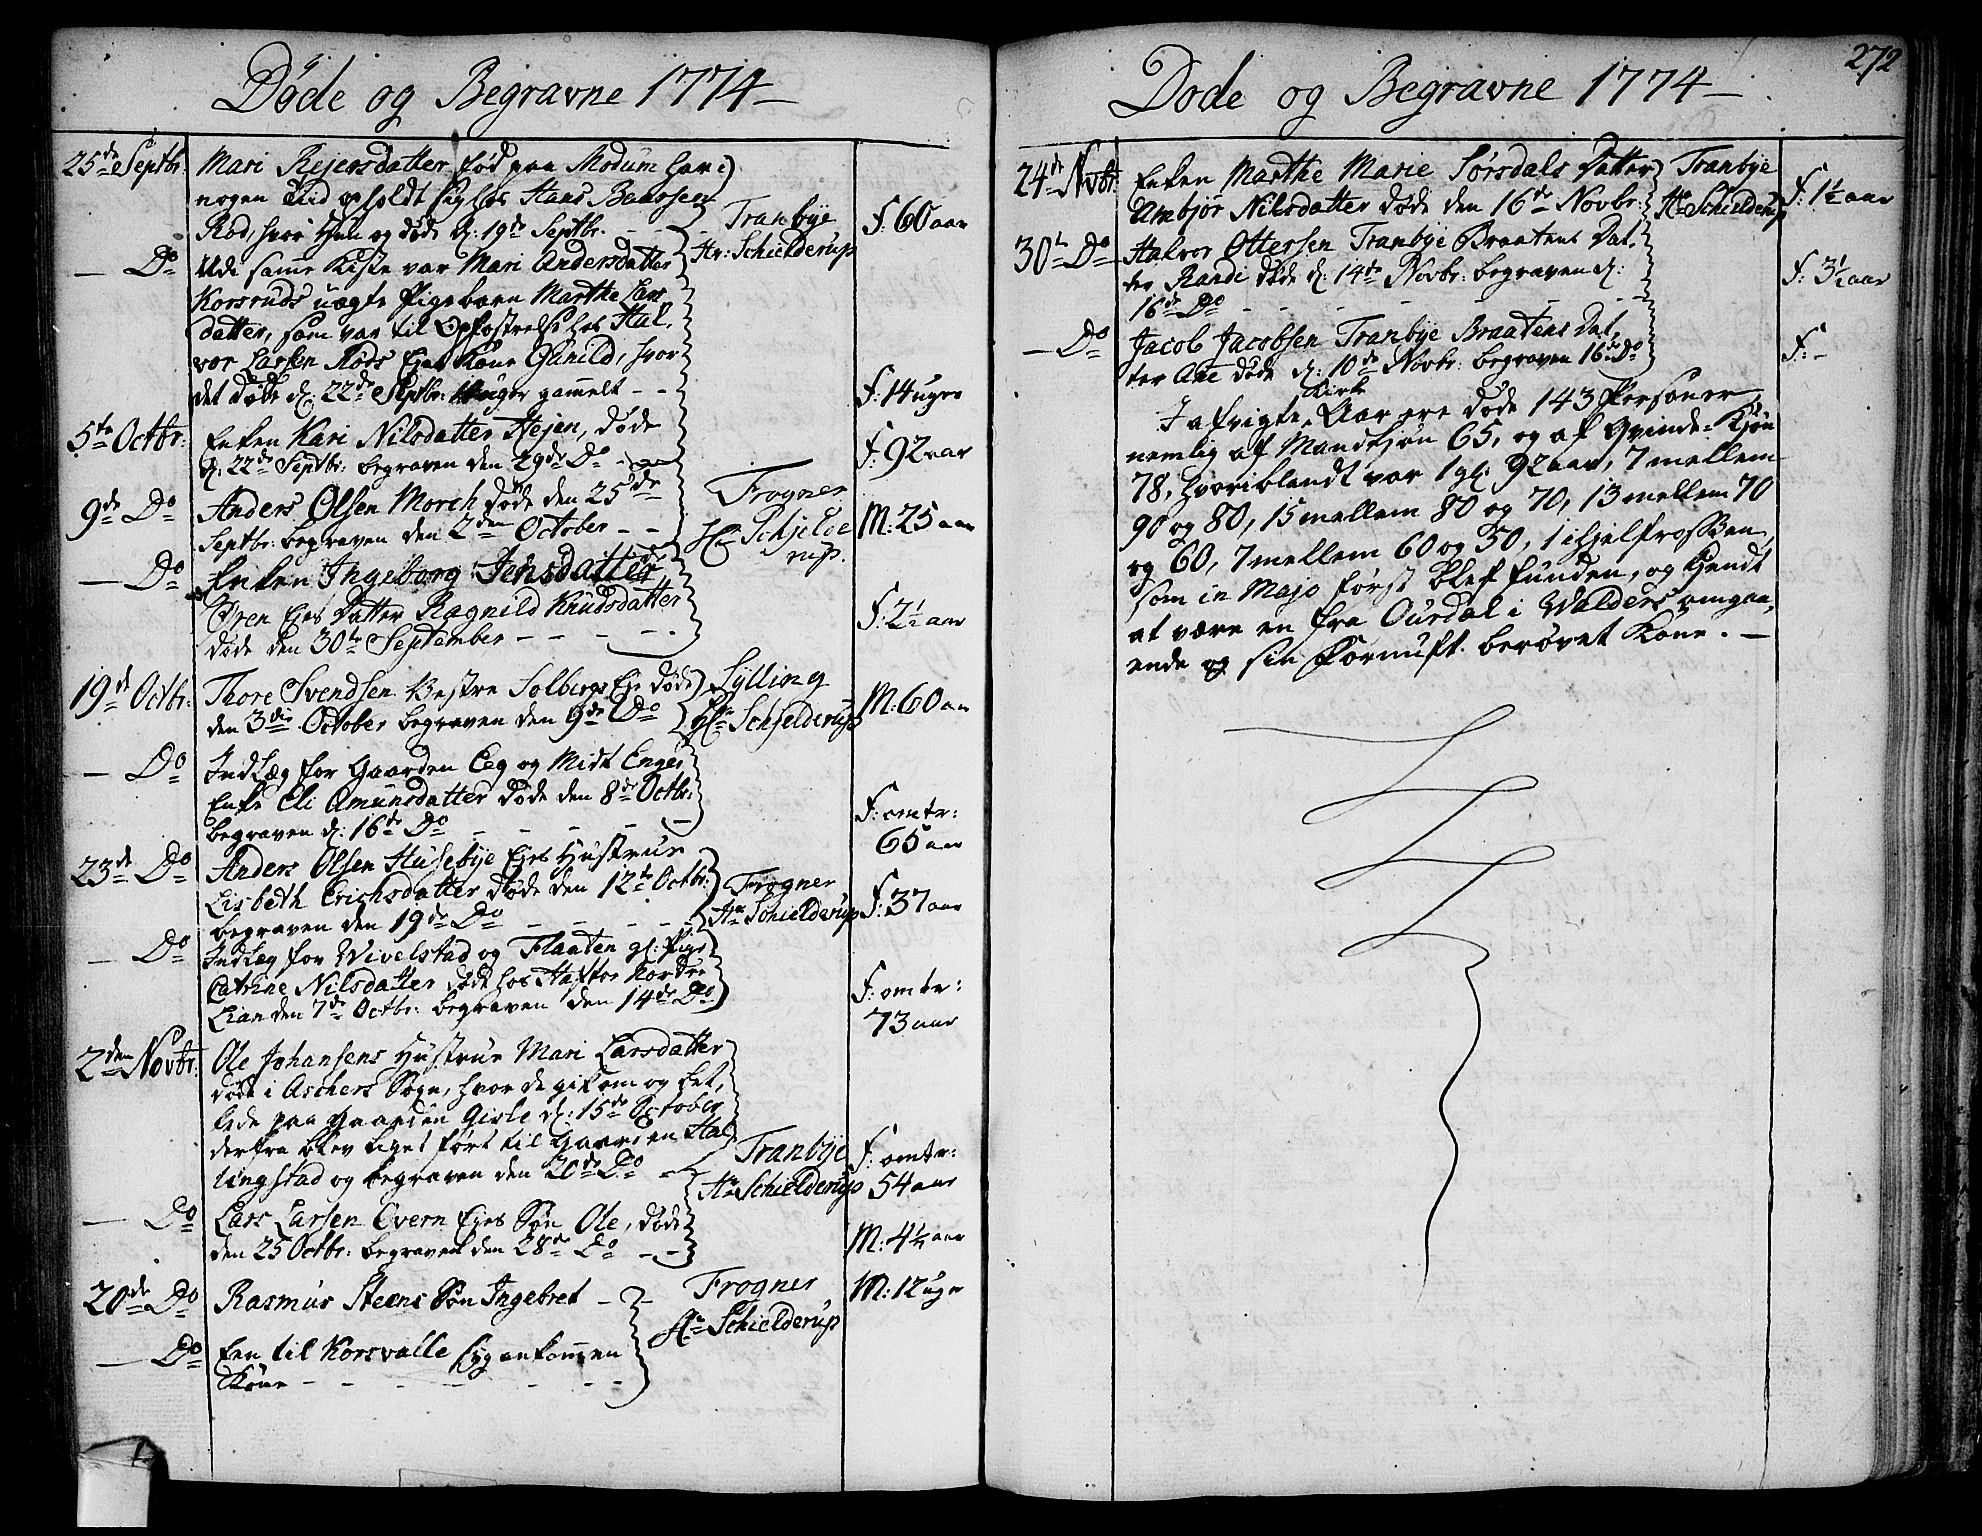 Døde og Begravne 1774
25de Septbr: Mari Rejersdatter fød paa Modum har i
nogen Tiid opholdt sig hos Hans
Rød, hvor Hun og døde d: 19de Septbr. Tranbye F: 60 aar
Hr: Schielderup
Do Udi samme Kiste var Mari Andersdatter
Korsruds uægte Pigebarn Marthe Lars
datter, som var til Opfostrelse hos Hal,
vor Larsen Røds Eyet Kone Gunild, hvor
det døde d: 22de Septbr: 14 uger gammelt F: 14 uger
5te Octbr: Enken Kari Nilsdatter Hejen, døde
d: 22de Septbr: begraven den 29de Do F: 92 aar
9de Do Anders Olsen Morch døde den 25de
Septbr: begraven den 2den October Frogner M: 25 aar
Hr Schjelde
rup.
Do Enken Ingeborg Jensdatter
Øren Eyes Datter Ragnild Knudsdatter
døde den 30te September F: 2½ aar
19de Octbr: Thore Svendsen Vestre Solbergs Eye døde Sylling
den 3die October begraven den 9de Do Hr Schjelderup M: 60 aar
Do Indlæg for Gaarden Eeg og Midt Enger
Enke Eli Amunsdatter døde den 8de Octbr:
begraven d: 16de Do F: omtr:
65 aar
23de Do Anders Olsen Husebye Eyes Hustrue
Lisbeth Erichsdatter døde den 12te Octbr: Frogner
begraven den 19de Do Hr Schielderup F: 37 aar
Do Indlæg for Wivelstad og Flaaten gl: Pige
Catrine Nilsdatter døde hos Haftor Nordre
Lian den 7de Octbr: begraven den 14de Do F: omtr:
73 aar
2den Novbr: Ole Johansens Hustrue Mari Larsdatter
døde i Aschers Sogn, hvor de gik om og bet,
lede paa Gaarden Gisle d: 15de October
derfra blev Liget ført til Gaarden Hal,
lingstad og begraven den 20de Do Tranbye F: omtr:
Hr Schielderup 54 aar
Do Lars Larsen Overn Eyes Søn Ole, døde
den 25 Octbr: begravet den 28de Do M: 4½ aar
20de Do Rasmus Steens Søn Ingebret Frogner M: 12 uger
Hr Schielderup
Do Een til Korsvalle Syg ankommen
Kone
272
Døde og Begravne 1774
24de Novbr: Enken Marthe Marie Sørsdals Datter Tranbye
Ambjør Nilsdatter døde den 16de Novbr: Hr Schielderup F: 1½ aar
30te Do Halvor Ottersen Tranbye Braatens Dat,
ter Randi døde d: 14de Novbr: begraven d:
16de Do F: 3½ aar
Do Jacob Jacobsen Tranbye Braatens Dat,
ter Ane døde d: 10de Novbr: begraven 16de Do F: -
I afvigte Kirke Aar ere døde 143 Personer,
nemlig af Mandkjøn 65, og af Qvinde-Kjøn
78, hvoriblandt var 1 gl: 92 aar, 7 mellem
90 og 80, 15 mellem 80 og 70, 13 mellem 70
og 60, 7 mellem 60 og 50, 1 ihjelfrossen,
som in Majo først blef funden, og kjendt
at være en fra Ourdal i Walders omgaa,
ende og sin Fornuft berøvet Kone.